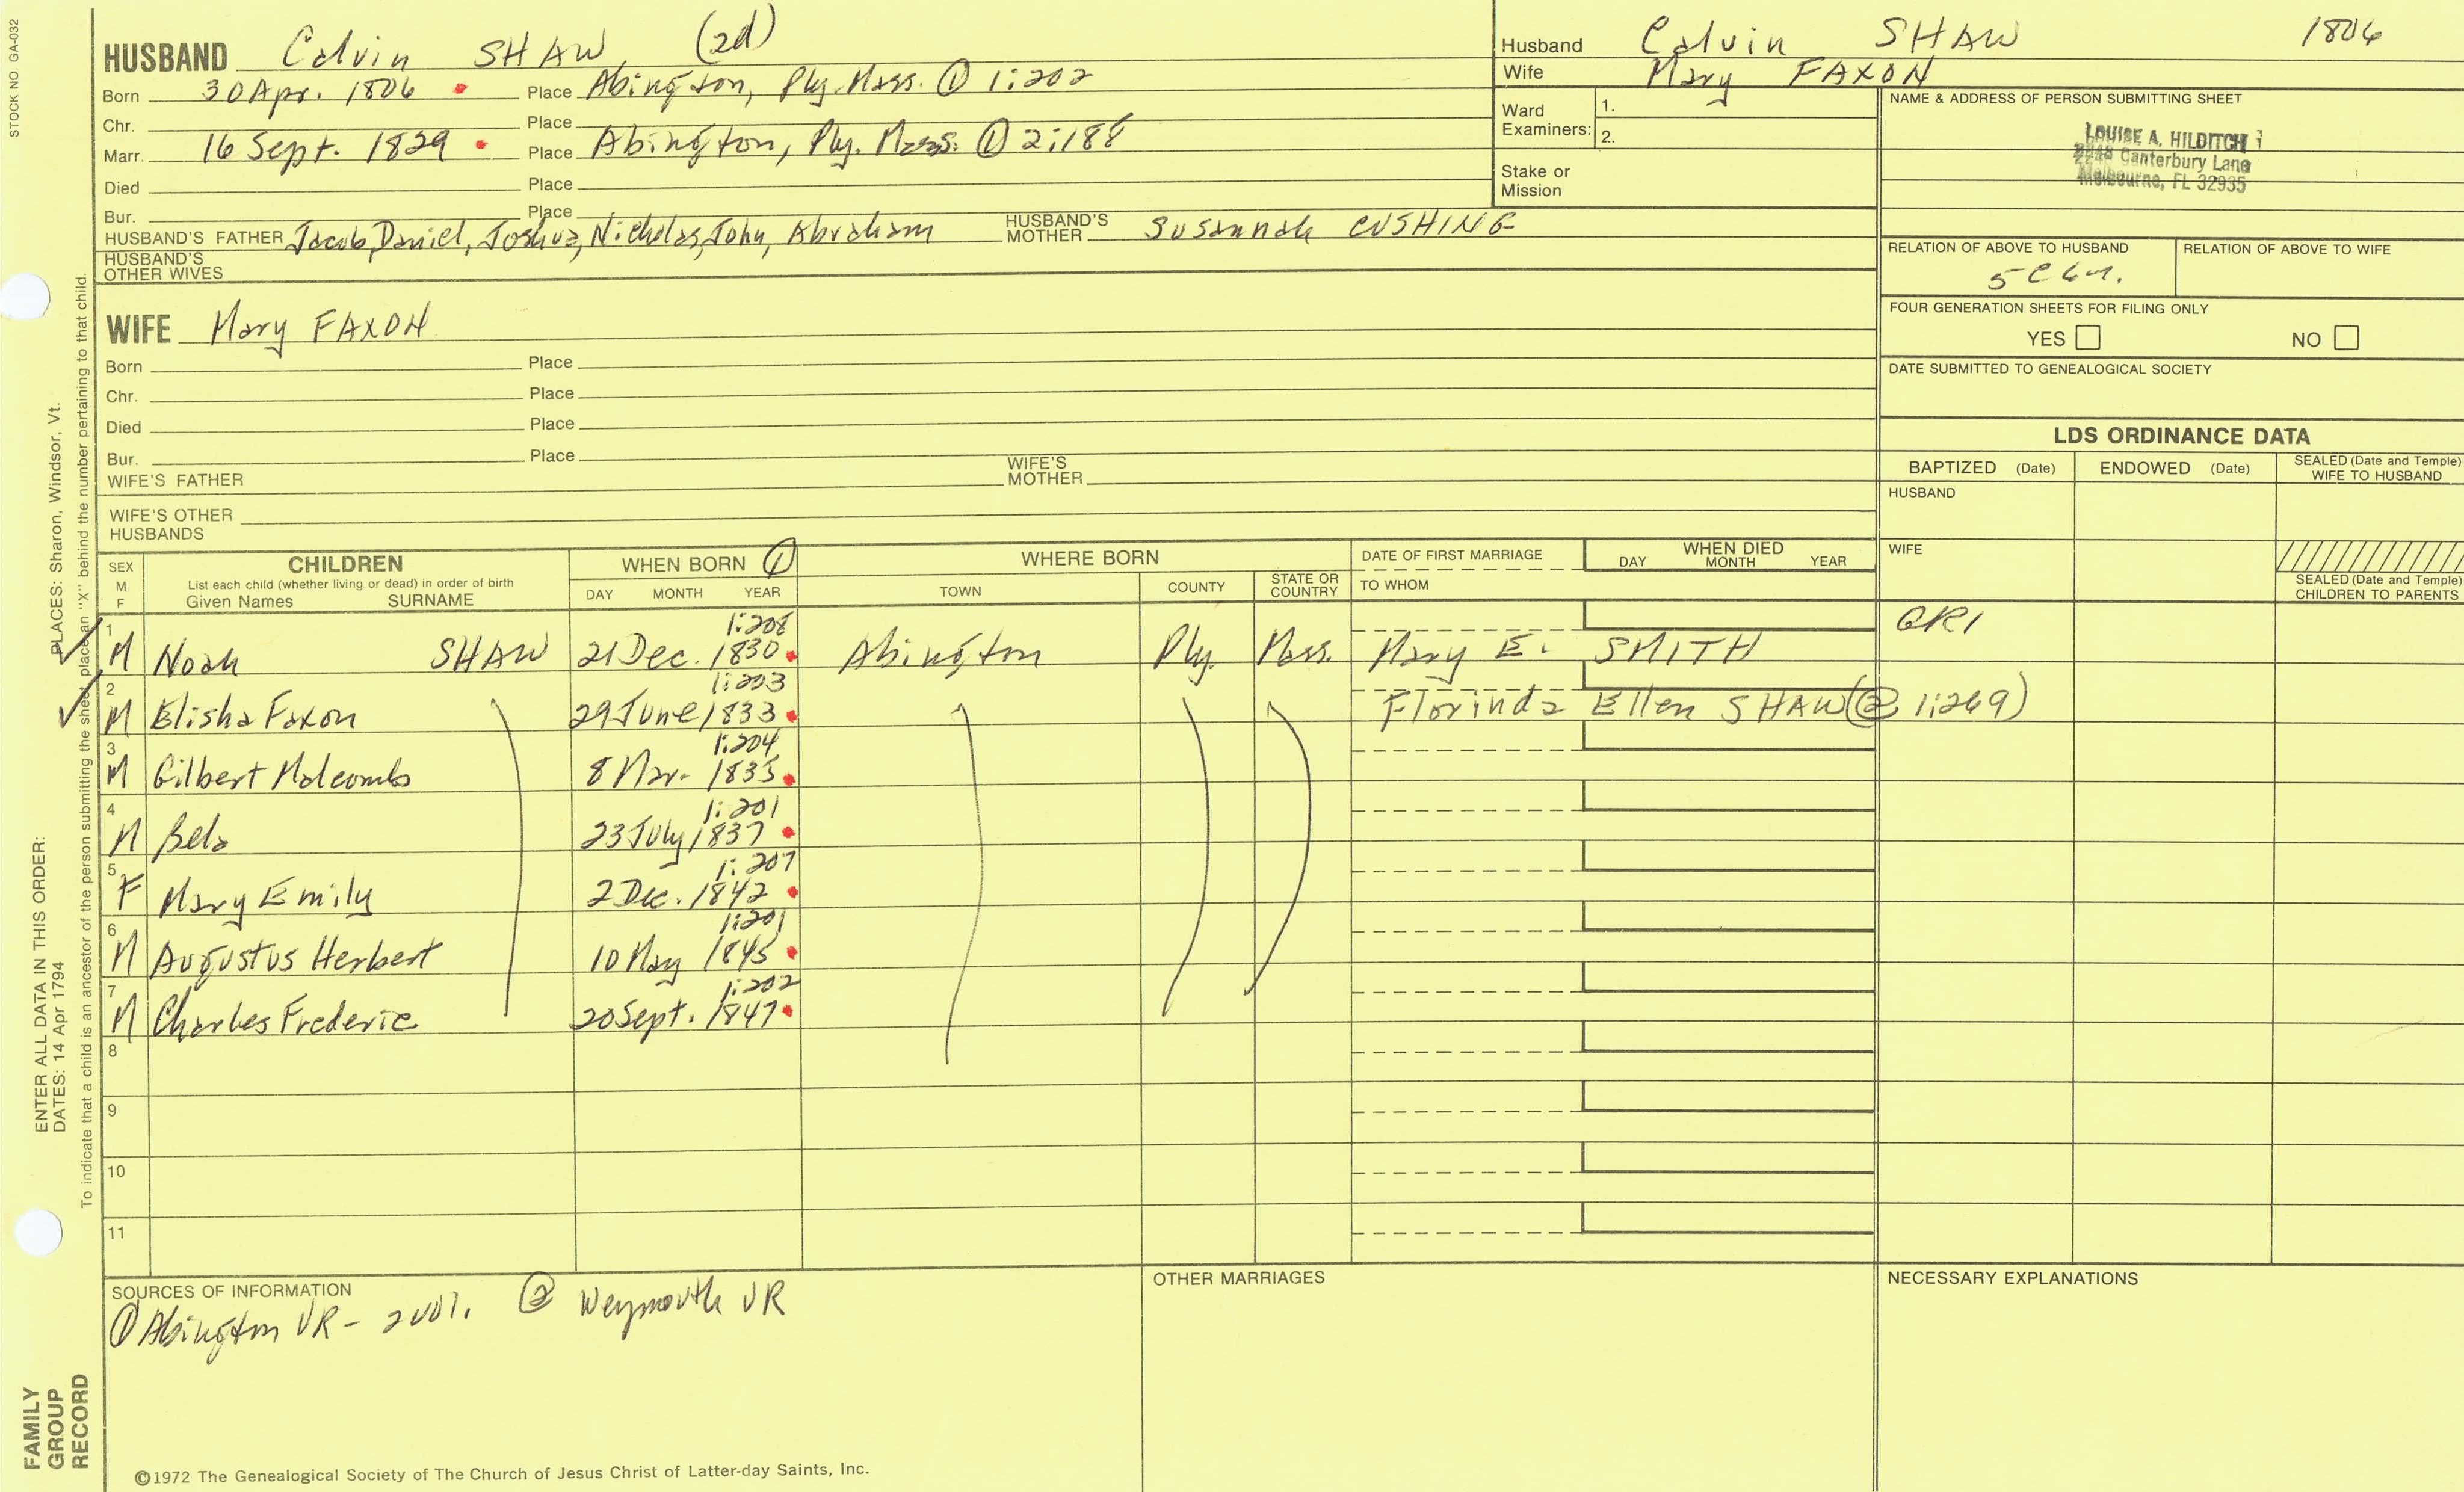 STOCK NO. GA-032
HUSBAND Calvin SHAW (2d)
Born 30 Apr. 1806 Place Abington, Ply. Mass. ① 1:202
Chr. Place
Marr. 16 Sept. 1829 Place Abington, Ply. Mass. ① 2:188
Died Place
Bur. Place
HUSBAND'S FATHER Jacob, Daniel, Joshua, Nicholas, John, Abraham HUSBAND'S MOTHER Susannah CUSHING
HUSBAND'S OTHER WIVES
WIFE Mary FAXON
Born Place
Chr. Place
Died Place
Bur. Place
WIFE'S FATHER WIFE'S MOTHER
WIFE'S OTHER HUSBANDS
Husband Calvin SHAW 1806
Wife Mary FAXON
Ward Examiners: 1.
2.
Stake or Mission
NAME & ADDRESS OF PERSON SUBMITTING SHEET
LOUISE A. HILDITCH
Canterbury Lane
Melbourne, FL 32935
RELATION OF ABOVE TO HUSBAND RELATION OF ABOVE TO WIFE
FOUR GENERATION SHEETS FOR FILING ONLY
YES NO
DATE SUBMITTED TO GENEALOGICAL SOCIETY
LDS ORDINANCE DATA
BAPTIZED (Date) ENDOWED (Date) SEALED (Date and Temple) WIFE TO HUSBAND
HUSBAND
WIFE
SEALED (Date and Temple) CHILDREN TO PARENTS
SEX M F
CHILDREN
List each child (whether living or dead) in order of birth
Given Names SURNAME
WHEN BORN ①
DAY MONTH YEAR
WHERE BORN
TOWN COUNTY STATE OR COUNTRY
DATE OF FIRST MARRIAGE
TO WHOM
WHEN DIED
DAY MONTH YEAR
1 M Noah SHAW 21 Dec. 1830 1:208 Abington Ply. Mass. Mary E. SMITH
2 M Elisha Faxon 29 June 1833 1:203 Florinda Ellen SHAW (② 1:269)
3 M Gilbert Malcomb 8 Mar. 1835 1:204
4 M Bela 23 July 1837 1:201
5 F Mary Emily 2 Dec. 1842 1:207
6 M Augustus Herbert 10 May 1845 1:201
7 M Charles Frederic 20 Sept. 1847 1:202
8
9
10
11
SOURCES OF INFORMATION
① Abington VR - 2 vol. ② Weymouth VR
OTHER MARRIAGES
NECESSARY EXPLANATIONS
©1972 The Genealogical Society of The Church of Jesus Christ of Latter-day Saints, Inc.
ENTER ALL DATA IN THIS ORDER:
DATES: 14 Apr 1794
PLACES: Sharon, Windsor, Vt.
To indicate that a child is an ancestor of the person submitting the sheet, place an "X" behind the number pertaining to that child.
FAMILY
GROUP
RECORD